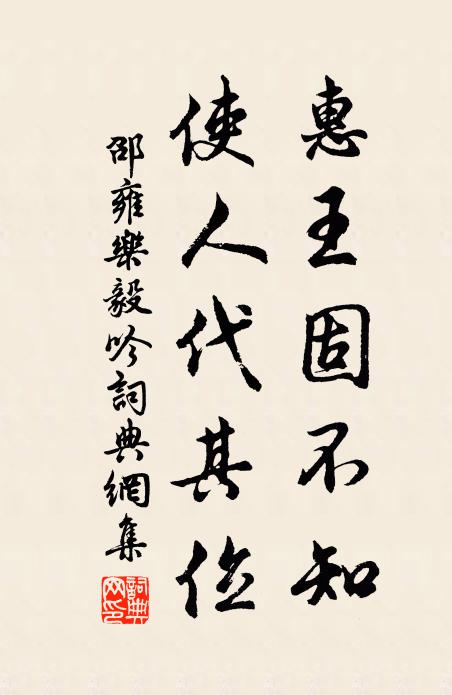 惠王固不知
使人代其位
邵雍樂毅吟詞典網集
詞典网印